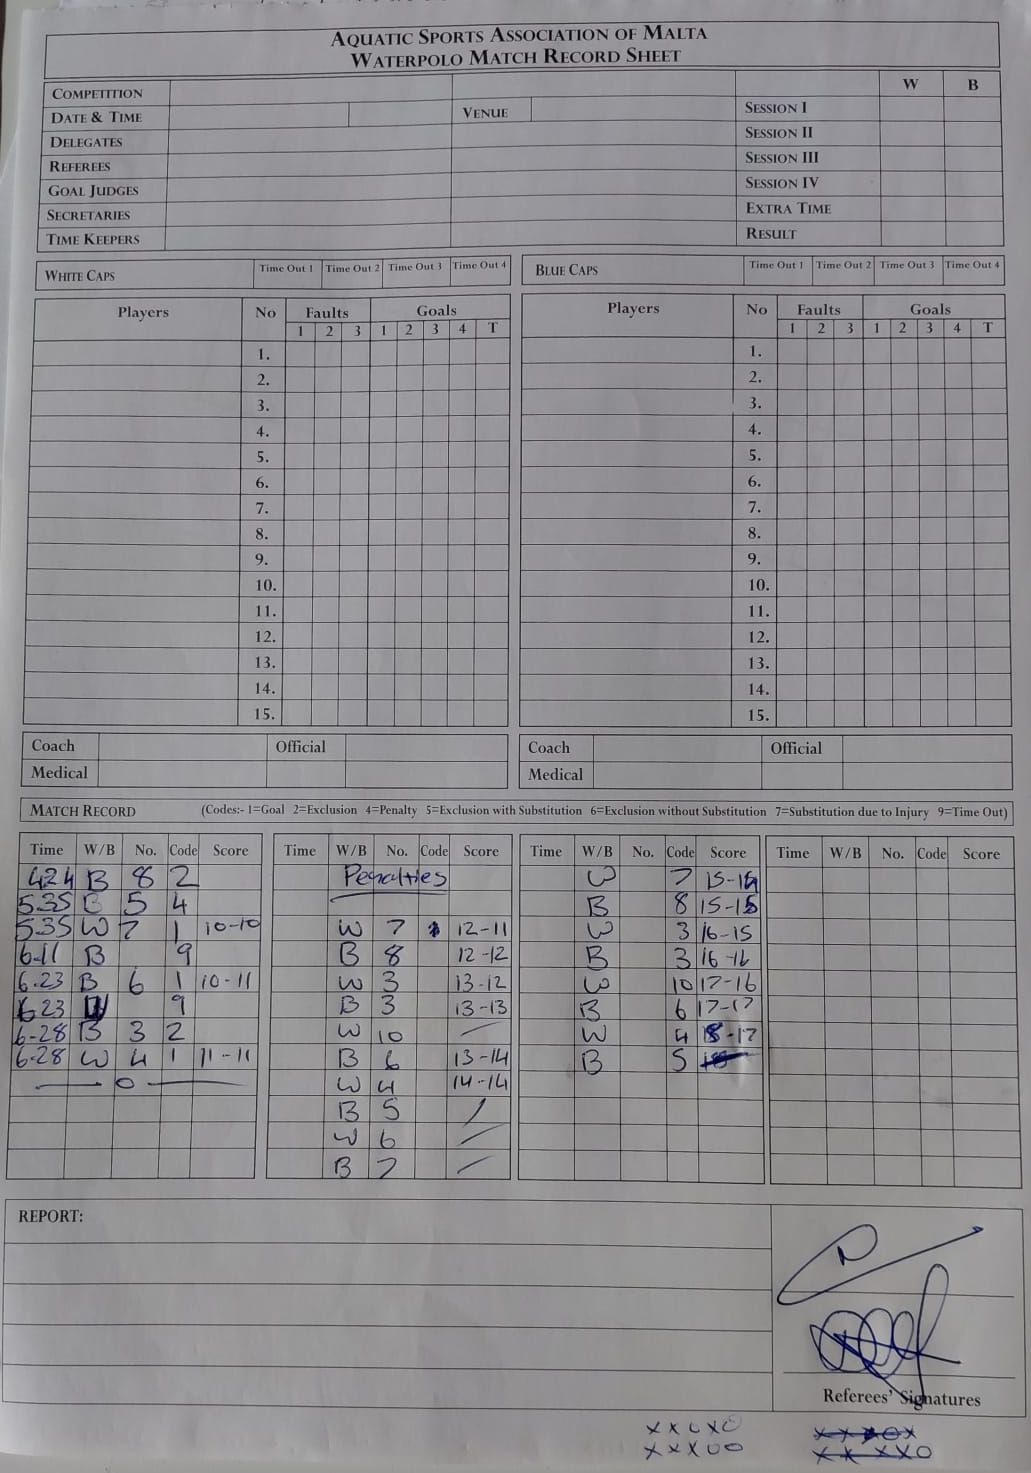 AQUATIC SPORTS ASSOCIATION OF MALTA
WATERPOLO MATCH RECORD SHEET
W B
COMPETITION
DATE & TIME VENUE SESSION I
DELEGATES SESSION II
REFEREES SESSION III
GOAL JUDGES SESSION IV
SECRETARIES EXTRA TIME
TIME KEEPERS RESULT
WHITE CAPS Time Out 1 Time Out 2 Time Out 3 Time Out 4 BLUE CAPS Time Out 1 Time Out 2 Time Out 3 Time Out 4
Players No Faults Goals Players No Faults Goals
1 2 3 1 2 3 4 T 1 2 3 1 2 3 4 T
1. 1.
2. 2.
3. 3.
4. 4.
5. 5.
6. 6.
7. 7.
8. 8.
9. 9.
10. 10.
11. 11.
12. 12.
13. 13.
14. 14.
15. 15.
Coach Official Coach Official
Medical Medical
MATCH RECORD (Codes:- 1=Goal 2=Exclusion 4=Penalty 5=Exclusion with Substitution 6=Exclusion without Substitution 7=Substitution due to Injury 9=Time Out)
Time W/B No. Code Score Time W/B No. Code Score Time W/B No. Code Score Time W/B No. Code Score
424 B 8 2 Penalties W 7 15-14
5.35 B 5 4 B 8 15-15
5.35 W 7 1 10-10 W 7 12-11 W 3 16-15
6-11 B 9 B 8 12-12 B 3 16-16
6.23 B 6 1 10-11 W 3 13-12 W 10 17-16
6.23 W 9 B 3 13-13 B 6 17-17
6-28 B 3 2 W 10 — W 4 18-17
6.28 W 4 1 11-11 B 6 13-14 B 5
— 0 — W 4 14-14
B 5 /
W 6 —
B 7 —
REPORT:
Referees' Signatures
x x o x o
x x x o o x x x x o